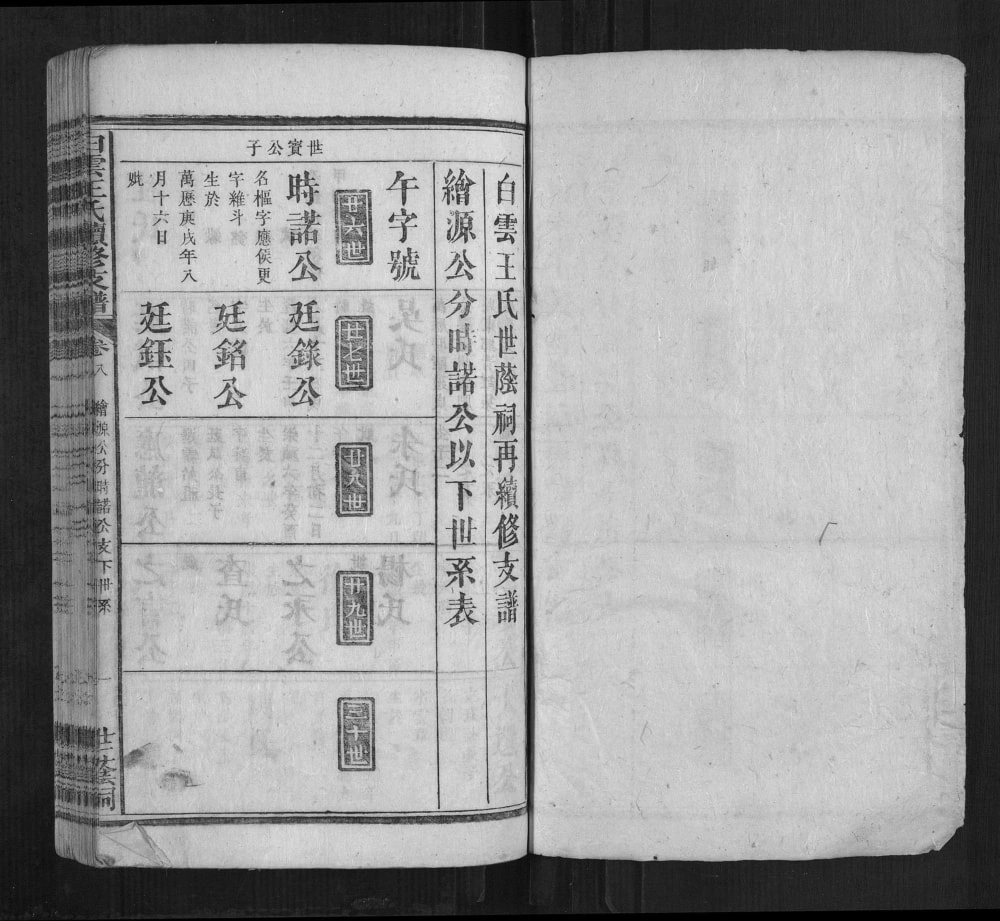 白雲王氏世蔭祠再續修支譜
繪源公分時諾公以下世系表
午字號
廿六世
廿七世
廿八世
廿九世
三十世
世賓公子
時諾公
名樞字應候更
字維斗
生於
萬歷庚戌年八
月十六日
妣
廷錄公
廷銘公
廷鈺公
白雲王氏續修支譜
卷八
繪源公分時諾公支下世系
一
世蔭祠